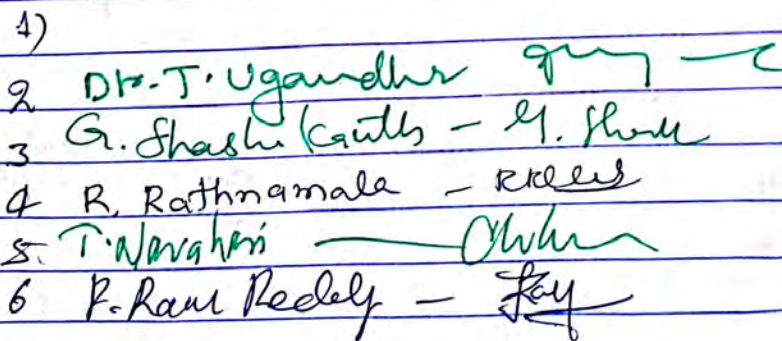 1)
2 Dr. T. Ugandhar
3 G. Shashi Kanth - G. Shash
4 R. Rathnamala -
5. T. Narahari —
6 P. Ram Reddy -